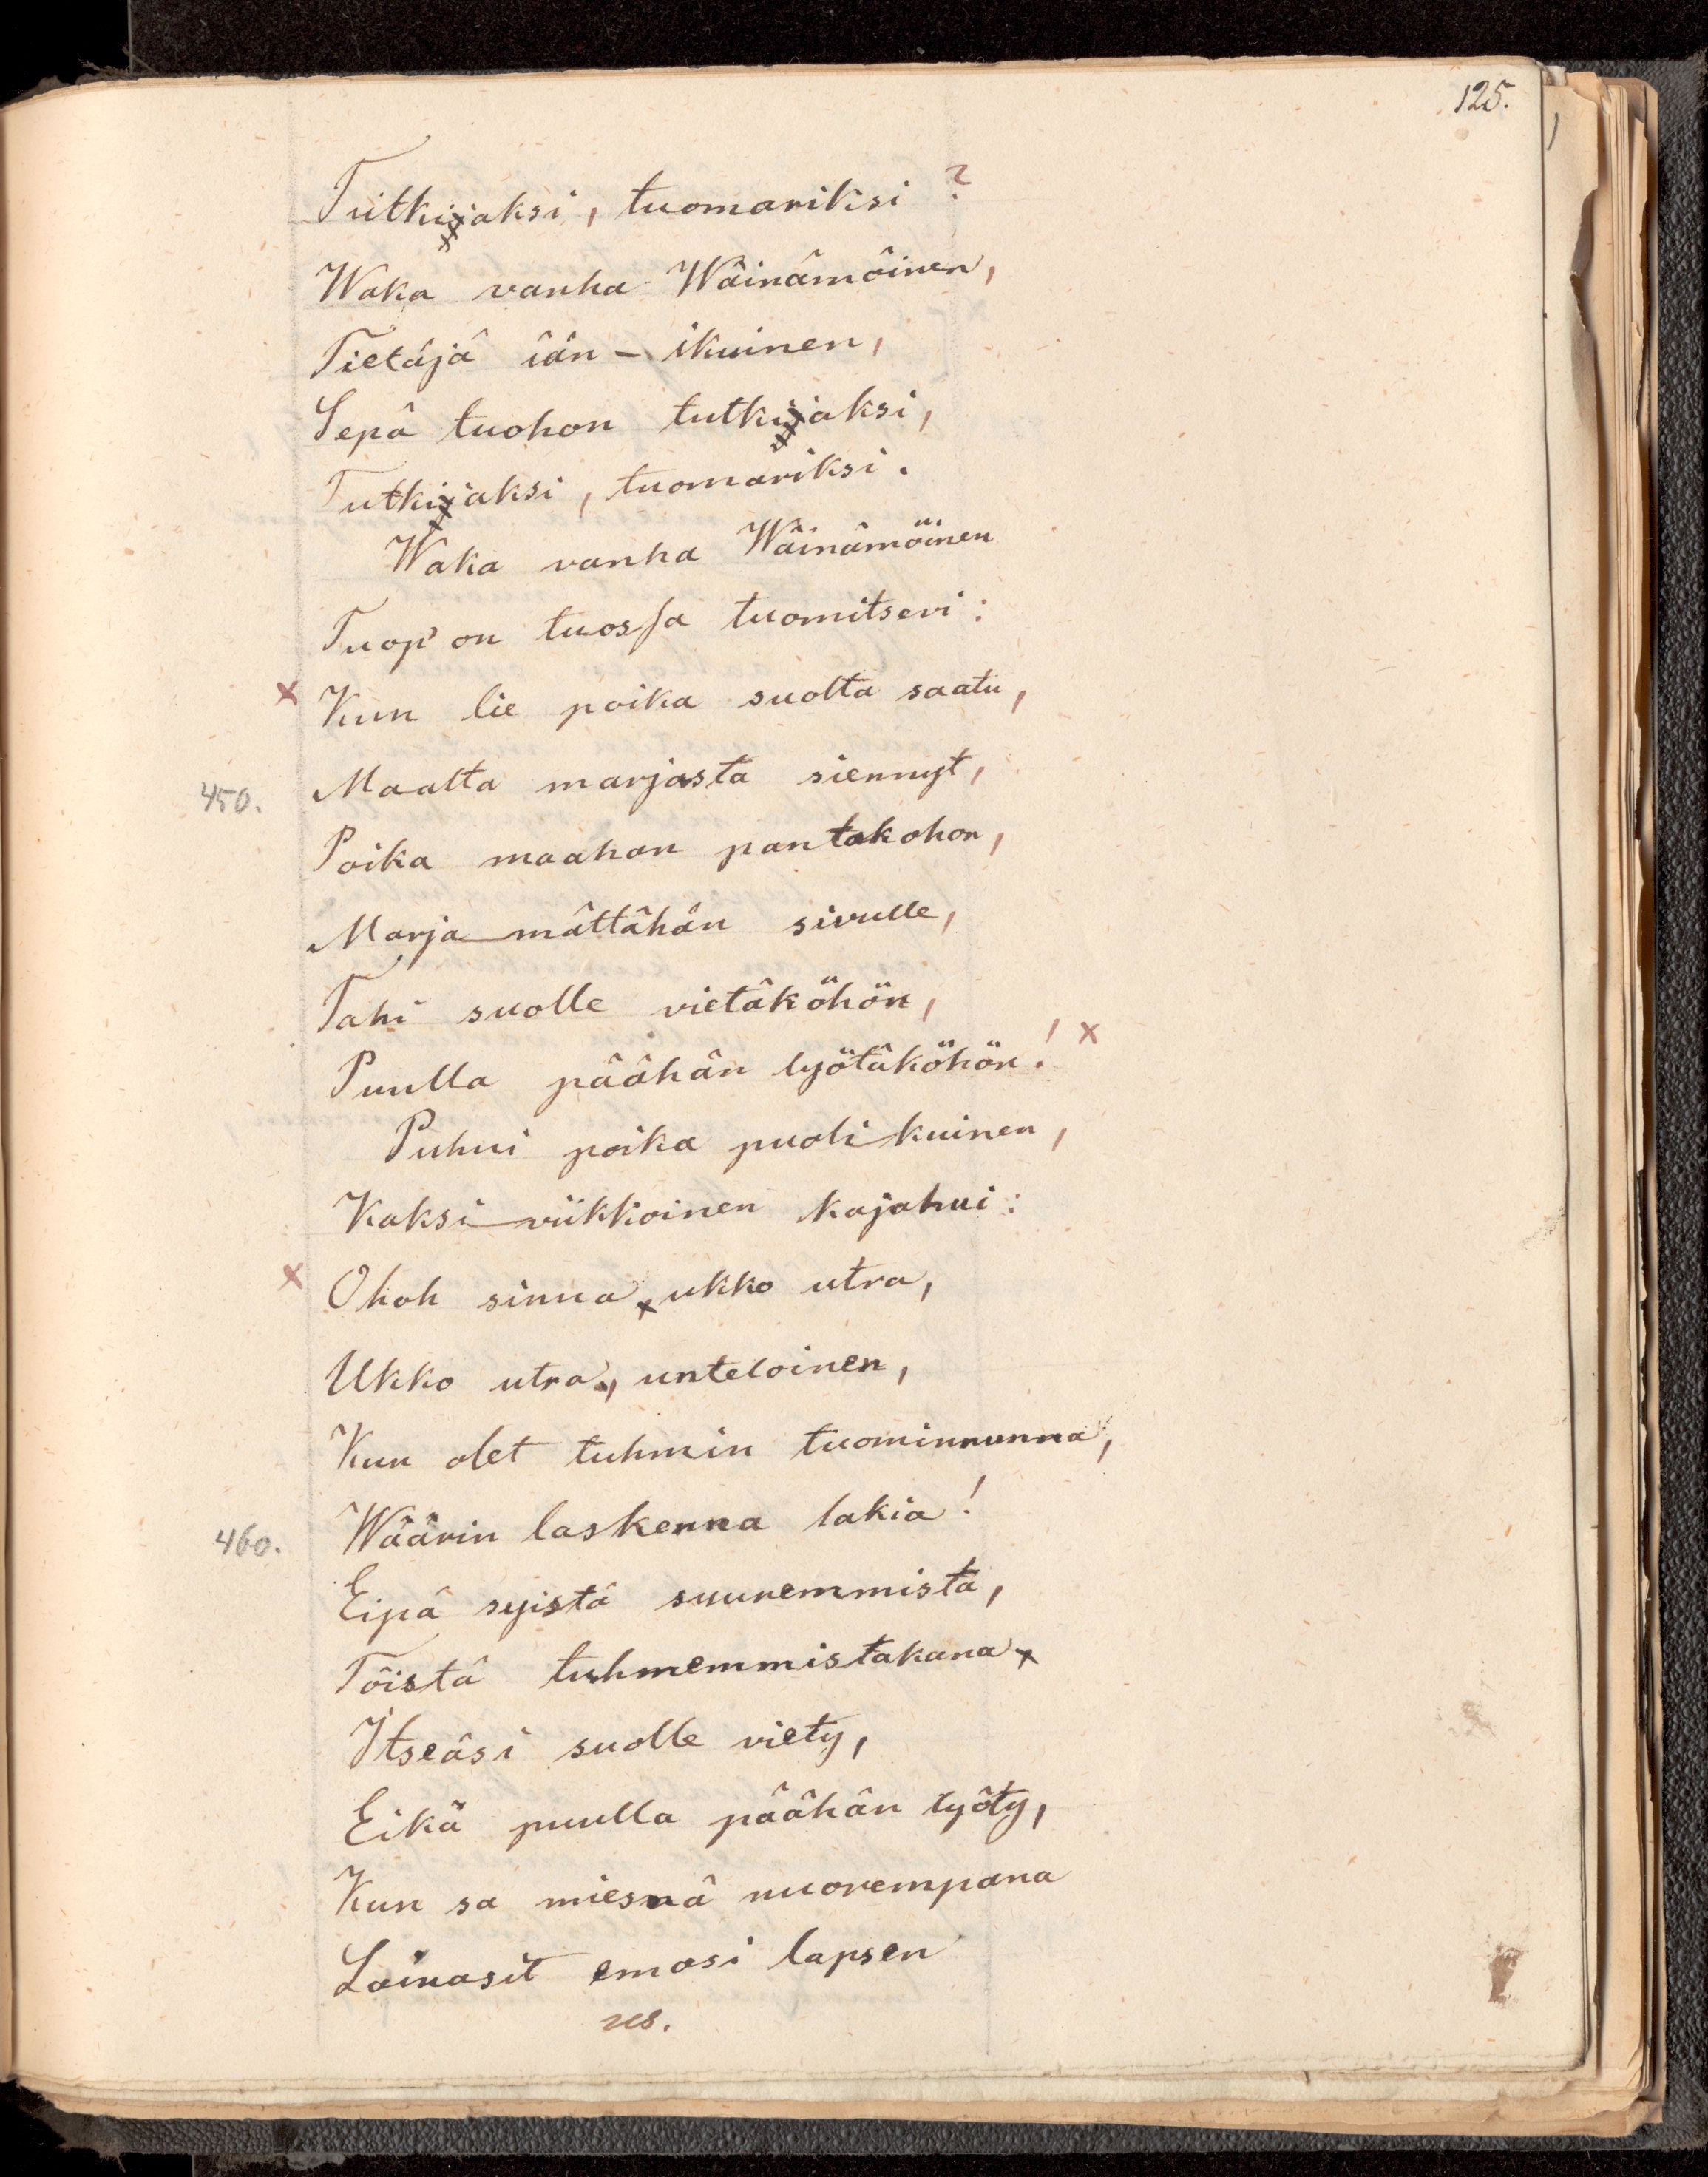 125.
Tutkijaksi, tuomariksi?
Waka vanha Wäinämöinen,
Tietäjä iän-ikuinen,
Sepä tuohon tutkijaksi,
Tutkijaksi, tuomariksi.
Waka vanha Wäinämöinen
Tuop' on tuossa tuomitsevi:
x Kun lie poika suolta saatu,
450. Maalta marjasta siennyt,
Poika maahan pantakohon,
Marja-mättähän sivulle,
Tahi suolle vietäköhön,
Puulla päähän lyötäköhön! x
Puhui poika puoli-kuinen,
Kaksi-viikkoinen kajahui:
x Ohoh sinua ukko utra,
Ukko utra, unteloinen,
Kun olet tuhmin tuominnunna,
460. Wäärin laskenna lakia!
Eipä syistä suuremmista,
Töistä tuhmemmistakana
Itseäsi suolle viety,
Eikä puulla päähän lyöty,
Kun sa miesnä nuorempana
Lainasit emosi lapsen